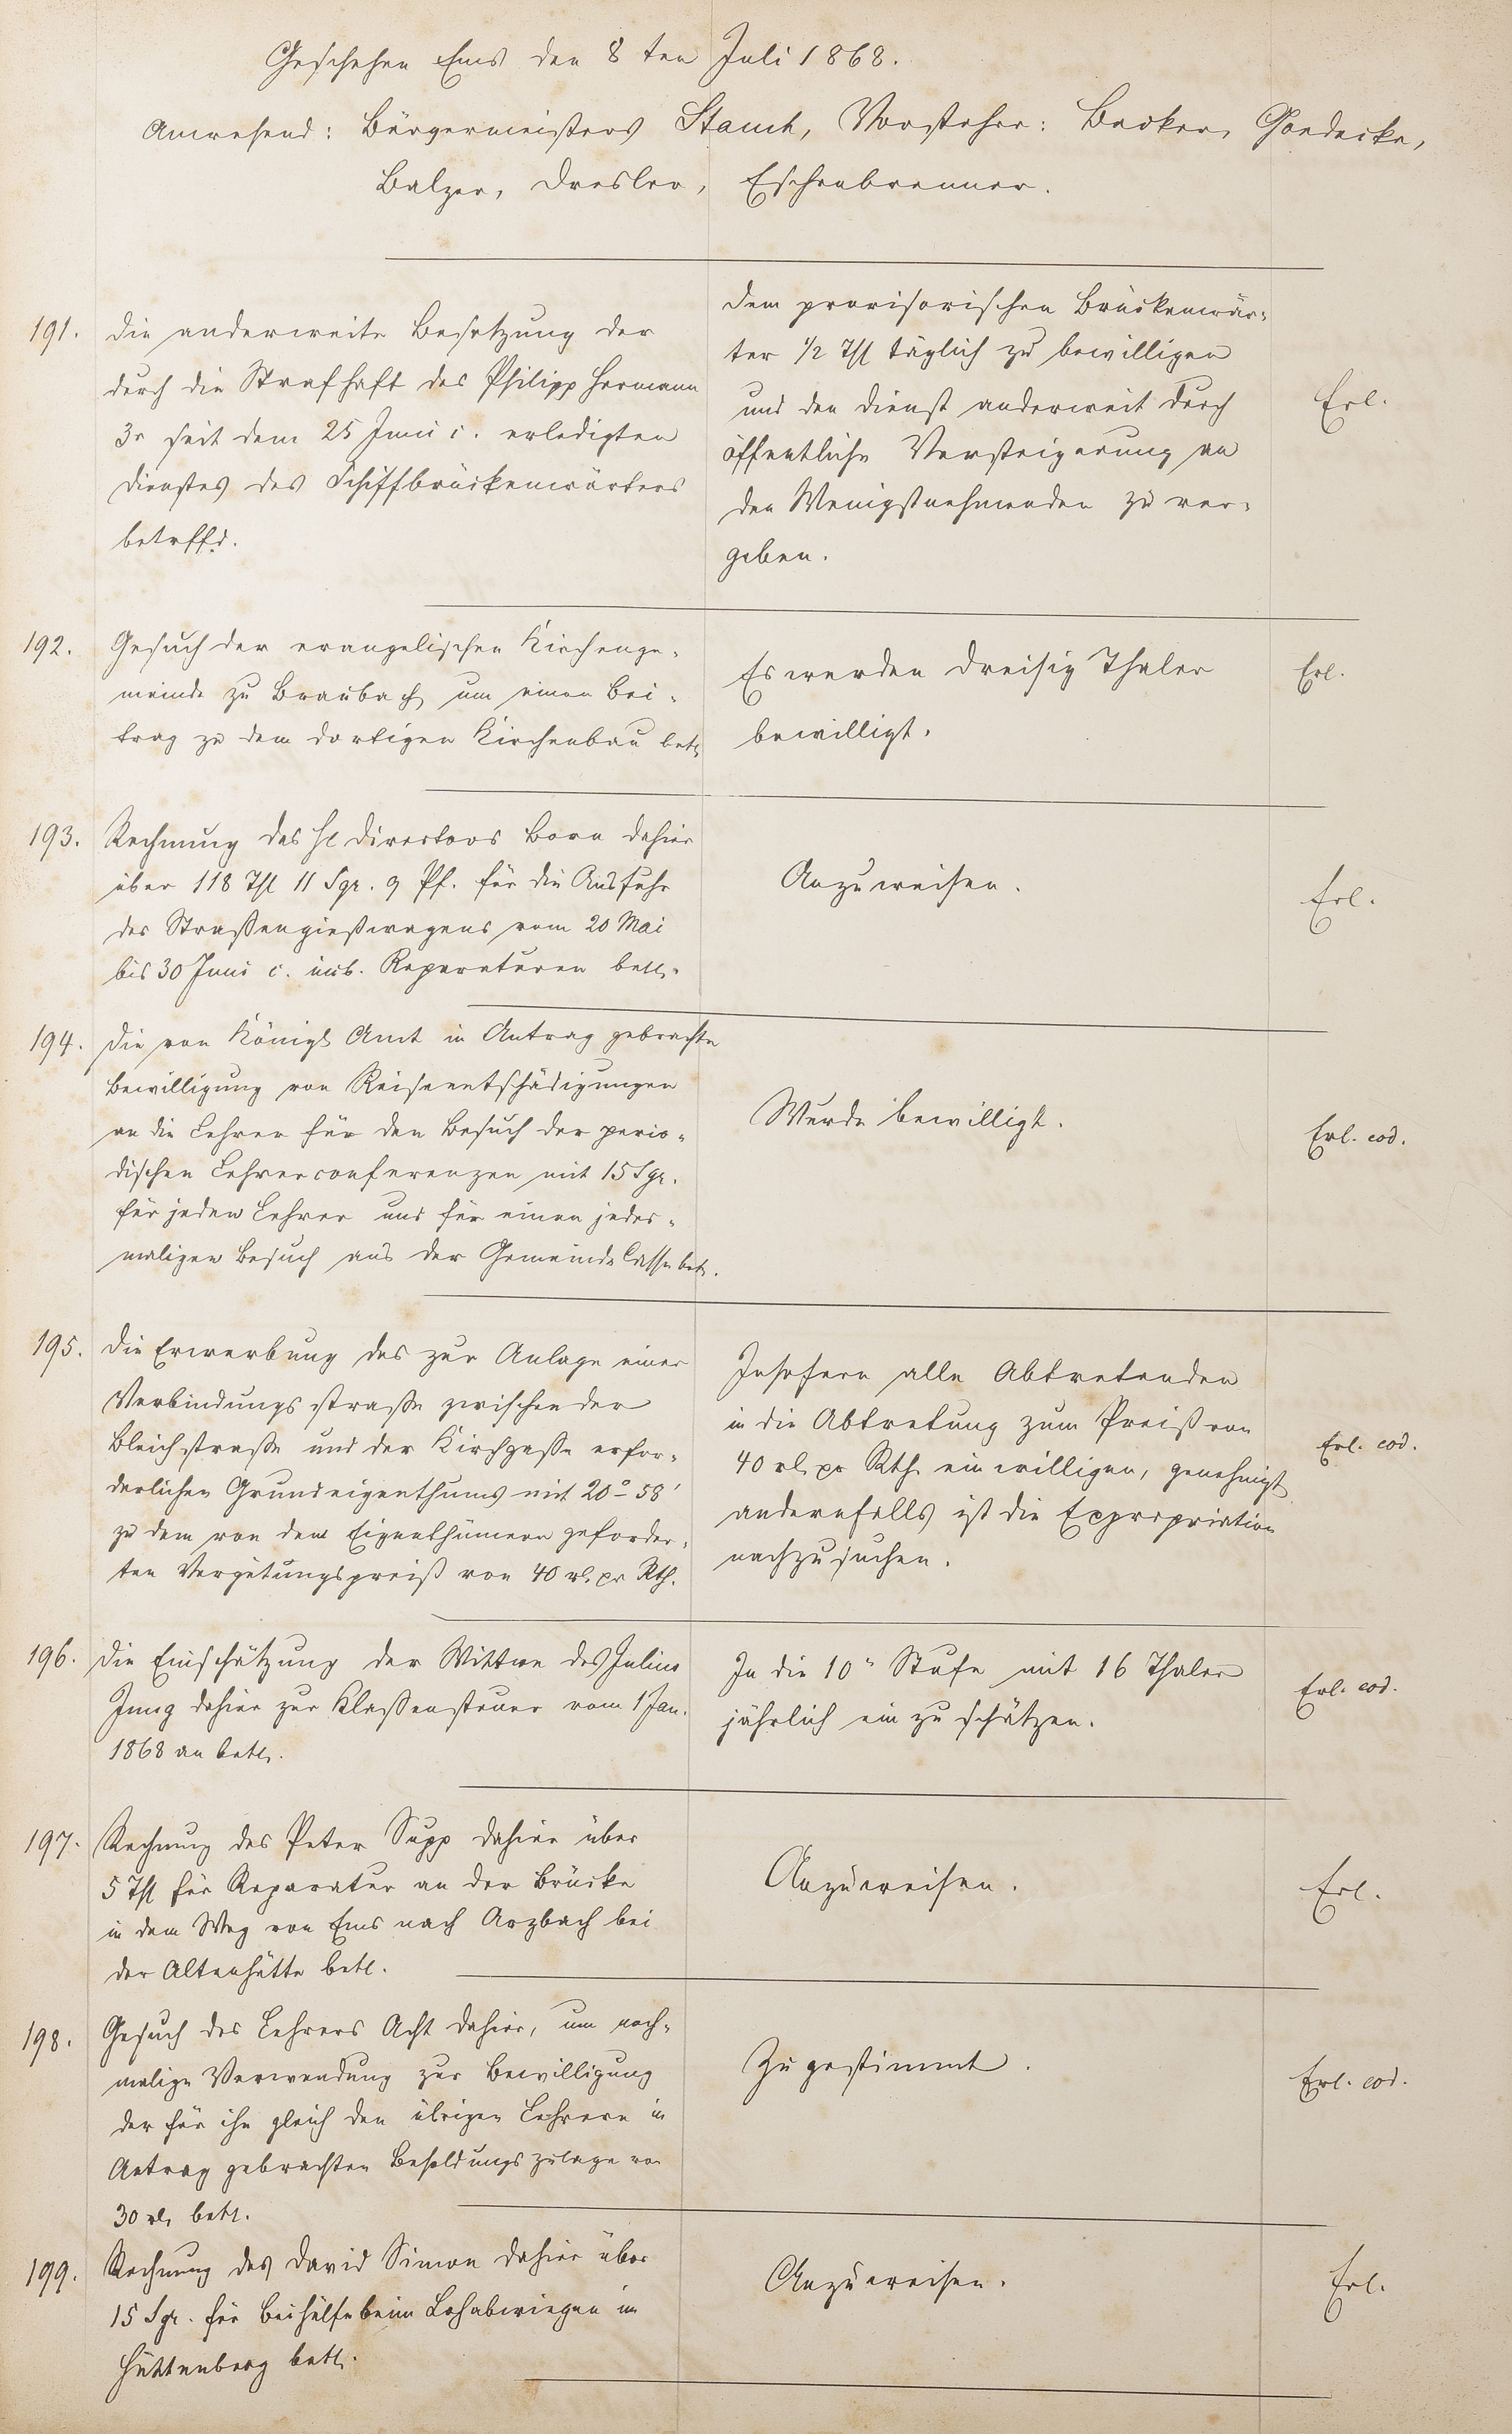 Geschehen Ems den 8ten Juli 1868.
Anwesend: Bürgermeisters Stauch, Vorsteher: Becker, Goedecke,
Balzer, Dresler, Eschenbrenner.
191. Die anderweite Besetzung der
durch die Strafhaft des Philipp Hermann
3r seit dem 25 Juni c. erledigten
Dienstes des Schiffbrückenwärters
betrffd.
Dem provisorischen Brückenwär-
ter 1/2 Thl täglich zu bewilligen
und den Dienst anderweit durch
öffentliche Versteigerung an
den Wenigstnehmenden zu ver-
geben.
Erl.
192. Gesuch der evangelischen Kirchenge-
meinde zu Braubach um einen Bei-
trag zu dem dortigen Kirchenbau betr.
Es werden dreisig Thaler
bewilligt.
Erl.
193. Rechnung des H. Directors Born dahier
über 118 Thl 11 Sgr. 9 Pf. für die Ausfuhr
des Straßengießwagens vom 20 Mai
bis 30 Juni c. incl. Reparaturen betr.
Anzuweisen.
Erl.
194. Die von Königl Amt in Antrag gebrachte
Bewilligung von Reiseentschädigungen
an die Lehrer für den Besuch der perio-
dischen Lehrerconferenzen mit 15 Sgr.
für jeden Lehrer und für einen jedes-
maligen Besuch aus der Gemeinde Casse betr.
Wurde bewilligt.
Erl. eod.
195. Die Erwerbung des zur Anlage einer
Verbindungsstraße zwischen der
Bleichstraße und der Kirchgaße erfor-
derlichen Grundeigenthums mit 20° 58'
zu dem von den Eigenthümern geforder-
ten Vergütungspreiß von 40 rl. pr Rth.
Insofern alle Abtretenden
in die Abtretung zum Preiß von
40 rl. pr Rth. einwilligen, genehmigt
andernfalls ist die Expropriation
nachzusuchen.
Erl. eod.
196. Die Einschätzung der Wittwe des Julius
Jung dahier zur Klaßensteuer vom 1 Jan.
1868 an betr.
In die 10" Stufe mit 16 Thaler
jährlich ein zu schätzen.
Erl. eod.
197. Rechnung des Peter Supp dahier über
5 Thl für Reparatur an der Brücke
in dem Weg von Ems nach Arzbach bei
der Altenhütte betr.
Anzuweisen.
Erl.
198. Gesuch des Lehrers Acht dahier, um noch-
malige Verwendung zur Bewilligung
der für ihn gleich den übrigen Lehrern in
Antrag gebrachten Besoldungszulage von
30 rl. betr.
Zugestimmt.
Erl. eod.
199. Rechnung des David Simon dahier über
15 Sgr. für Beihülfe beim Lohabwiegen im
Hüttenberg betr.
Anzuweisen.
Erl.